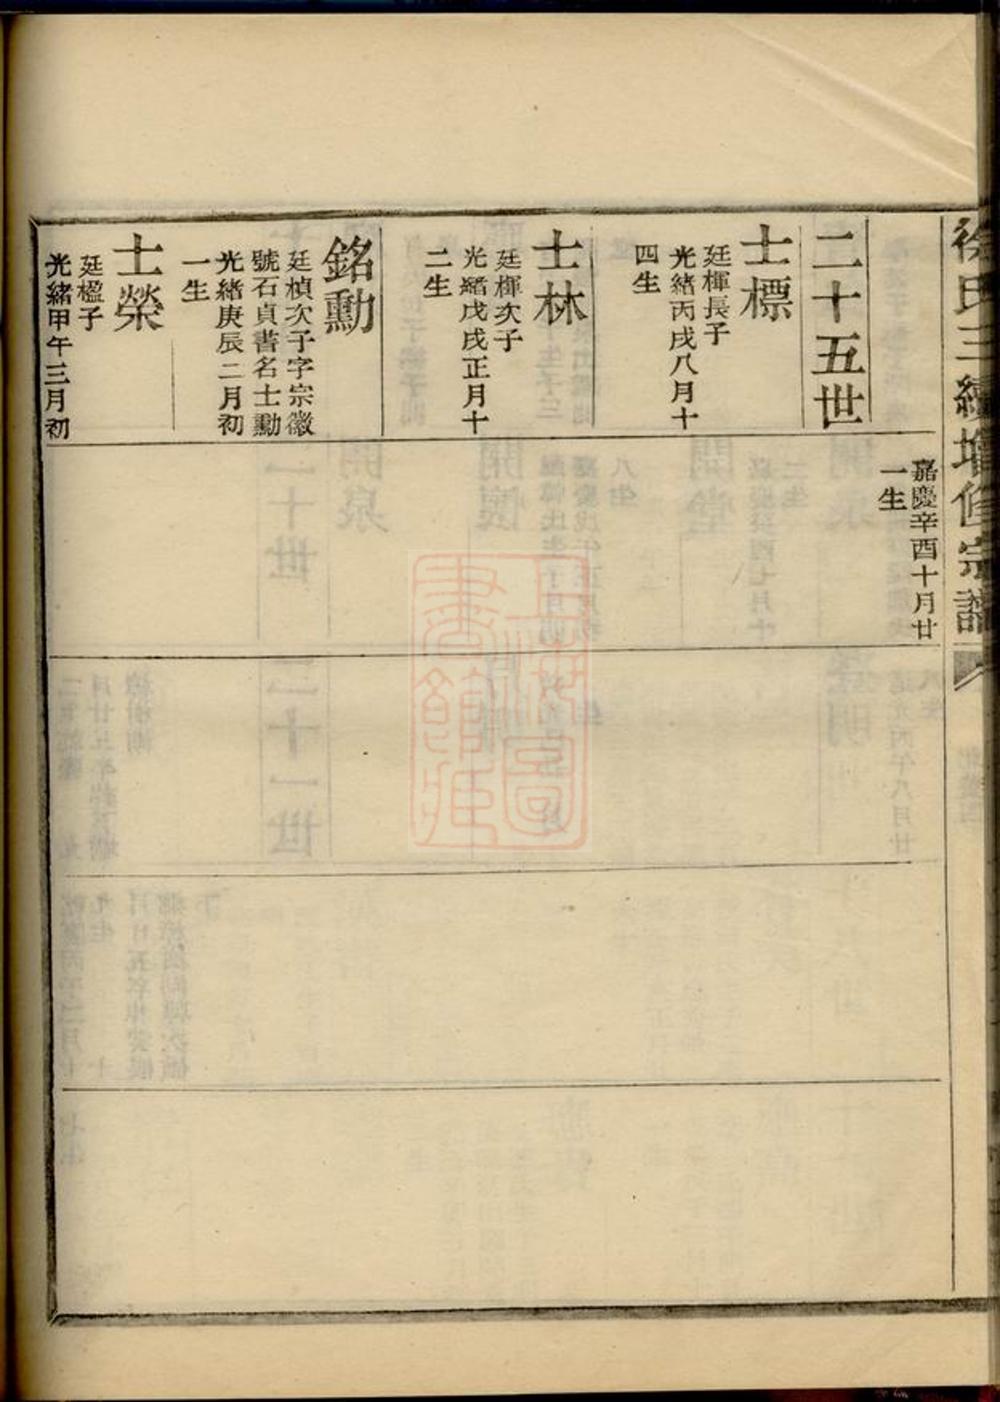 徐氏三續增修宗譜
二十五世
士標
廷楎長子
光緒丙戌八月十
四生
士林
廷楎次子
光緒戊戌正月十
二生
銘勳
廷楨次子字宗徽
號石貞書名士勳
光緒庚辰二月初
一生
士榮
廷楹子
光緒甲午三月初
嘉慶辛酉十月廿
一生
上海圖書館藏